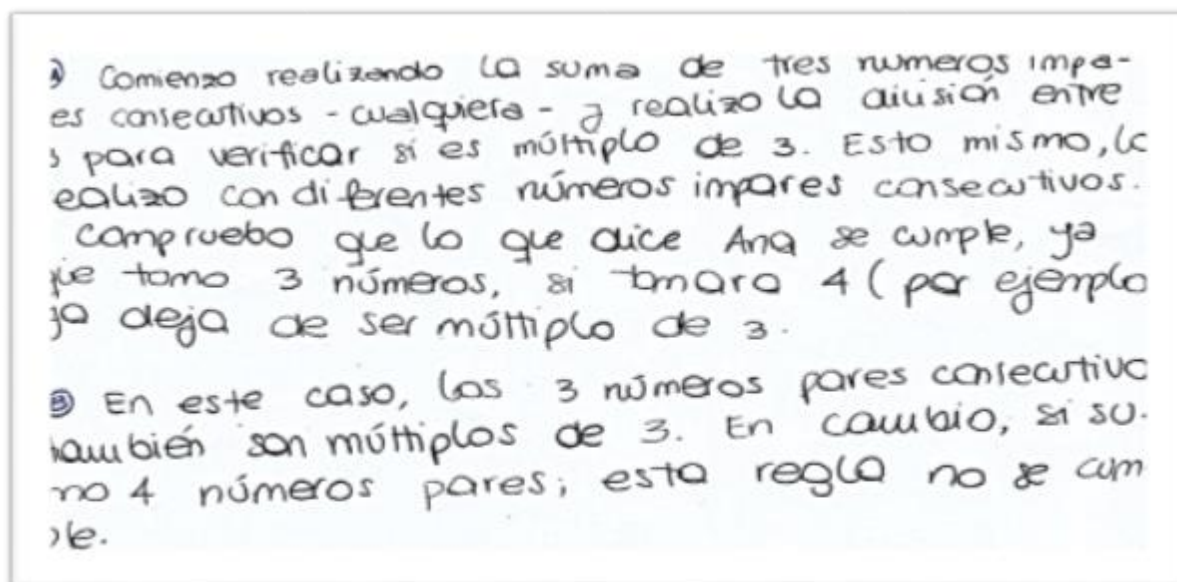 Ⓐ Comienzo realizando la suma de tres numeros impa-
es consecutivos - cualquiera - y realizo la división entre
3 para verificar si es múltiplo de 3. Esto mismo, lo
ealizo con diferentes números impares consecutivos.
Compruebo que lo que dice Ana se cumple, ya
que tomo 3 números, si tomara 4 (por ejemplo
ya deja de ser múltiplo de 3.
Ⓑ En este caso, los 3 números pares consecutivo
también son múltiplos de 3. En cambio, si su-
mo 4 números pares; esta regla no se cum
ple.